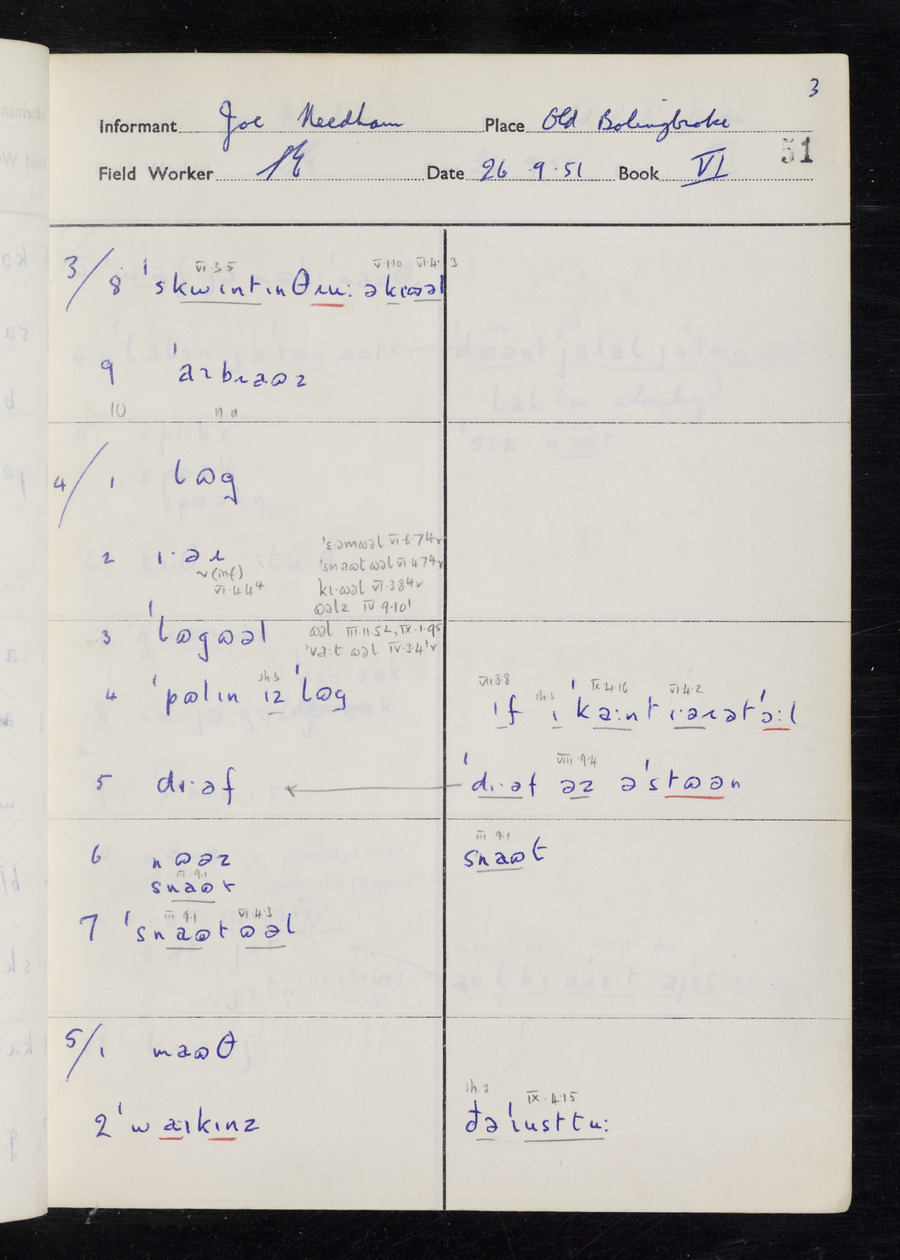 3
Informant Joe Needham Place Old Bolingbroke
51
Field Worker Date 26 .9.51 Book VI
VI.3.5 V.1.10 VI.4.3
3/8 ˈskwɪntɪnθɹuː əkɪɷəl
9 ˈaɪbɹaɷz
10 n.a
4/1 lɷg
2 ɪ·əɹ
~(inf)
VI.4.4⁴
ˈɛəmɷəl VI.6.7⁴v
ˈsnaɷt ɷəl VI.4.7⁴v
kɪ·ɷəl VI.3.8⁴v
ɷəlz IV.9.10¹
3 ˈlɷgɷəl
ɷəl III.11.5², IX.1.9⁵
ˈvaːt ɷəl IV.3.4¹v
sh.3
4 ˈpɷlɪn ɪz ˈlɷg
VI.8.8 sh.3 IX.4.16 VI.4.2
ɪf ɪ ˈkaːnt ɪəɹətˈɔːl
5 dɪ·əf
VIII.9.4
ˈdɪ·əf əz əˈstɷən
6 nɷəz
III.9.1
snaɷt
III.9.1
snaɷt
III.9.1 VI.4.3
7 ˈsnaɷtɷəl
5/1 maɷθ
2 ˈwaːɪkɪnz
sh.3 IX.4.15
ðəˈɪusttuː